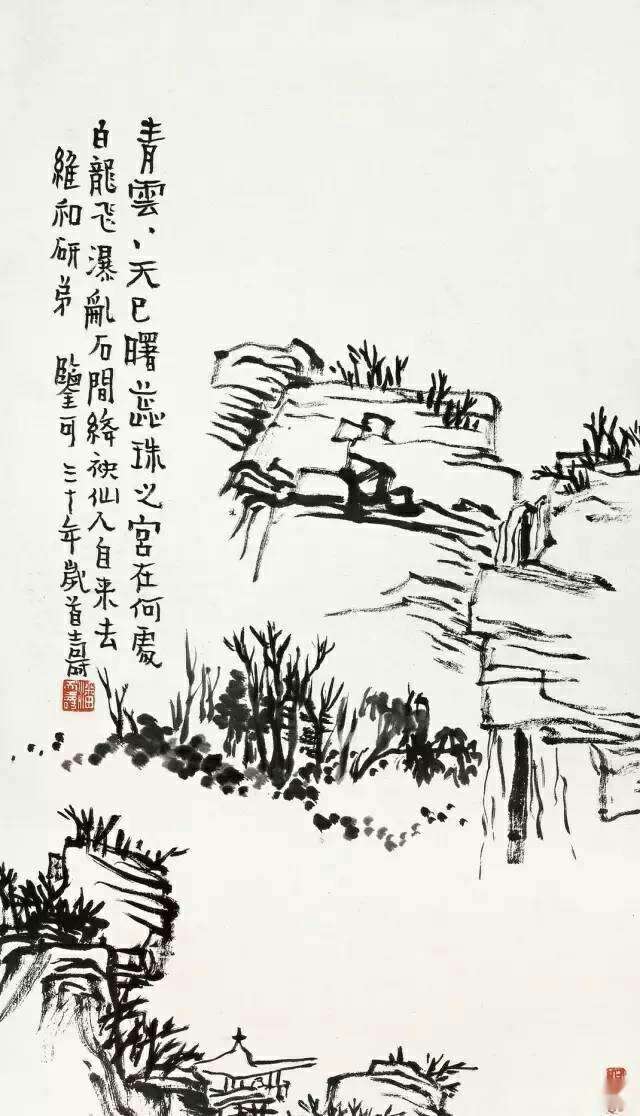 青雲〻天已曙蕊珠之宮在何處
白龍飛瀑亂石間絳袂仙人自来去
維和研弟 鑒可 三十年歲首壽
潘天壽